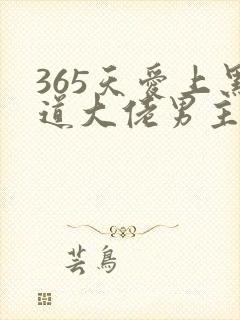 365天爱上黑
道大佬男主
芸鸟